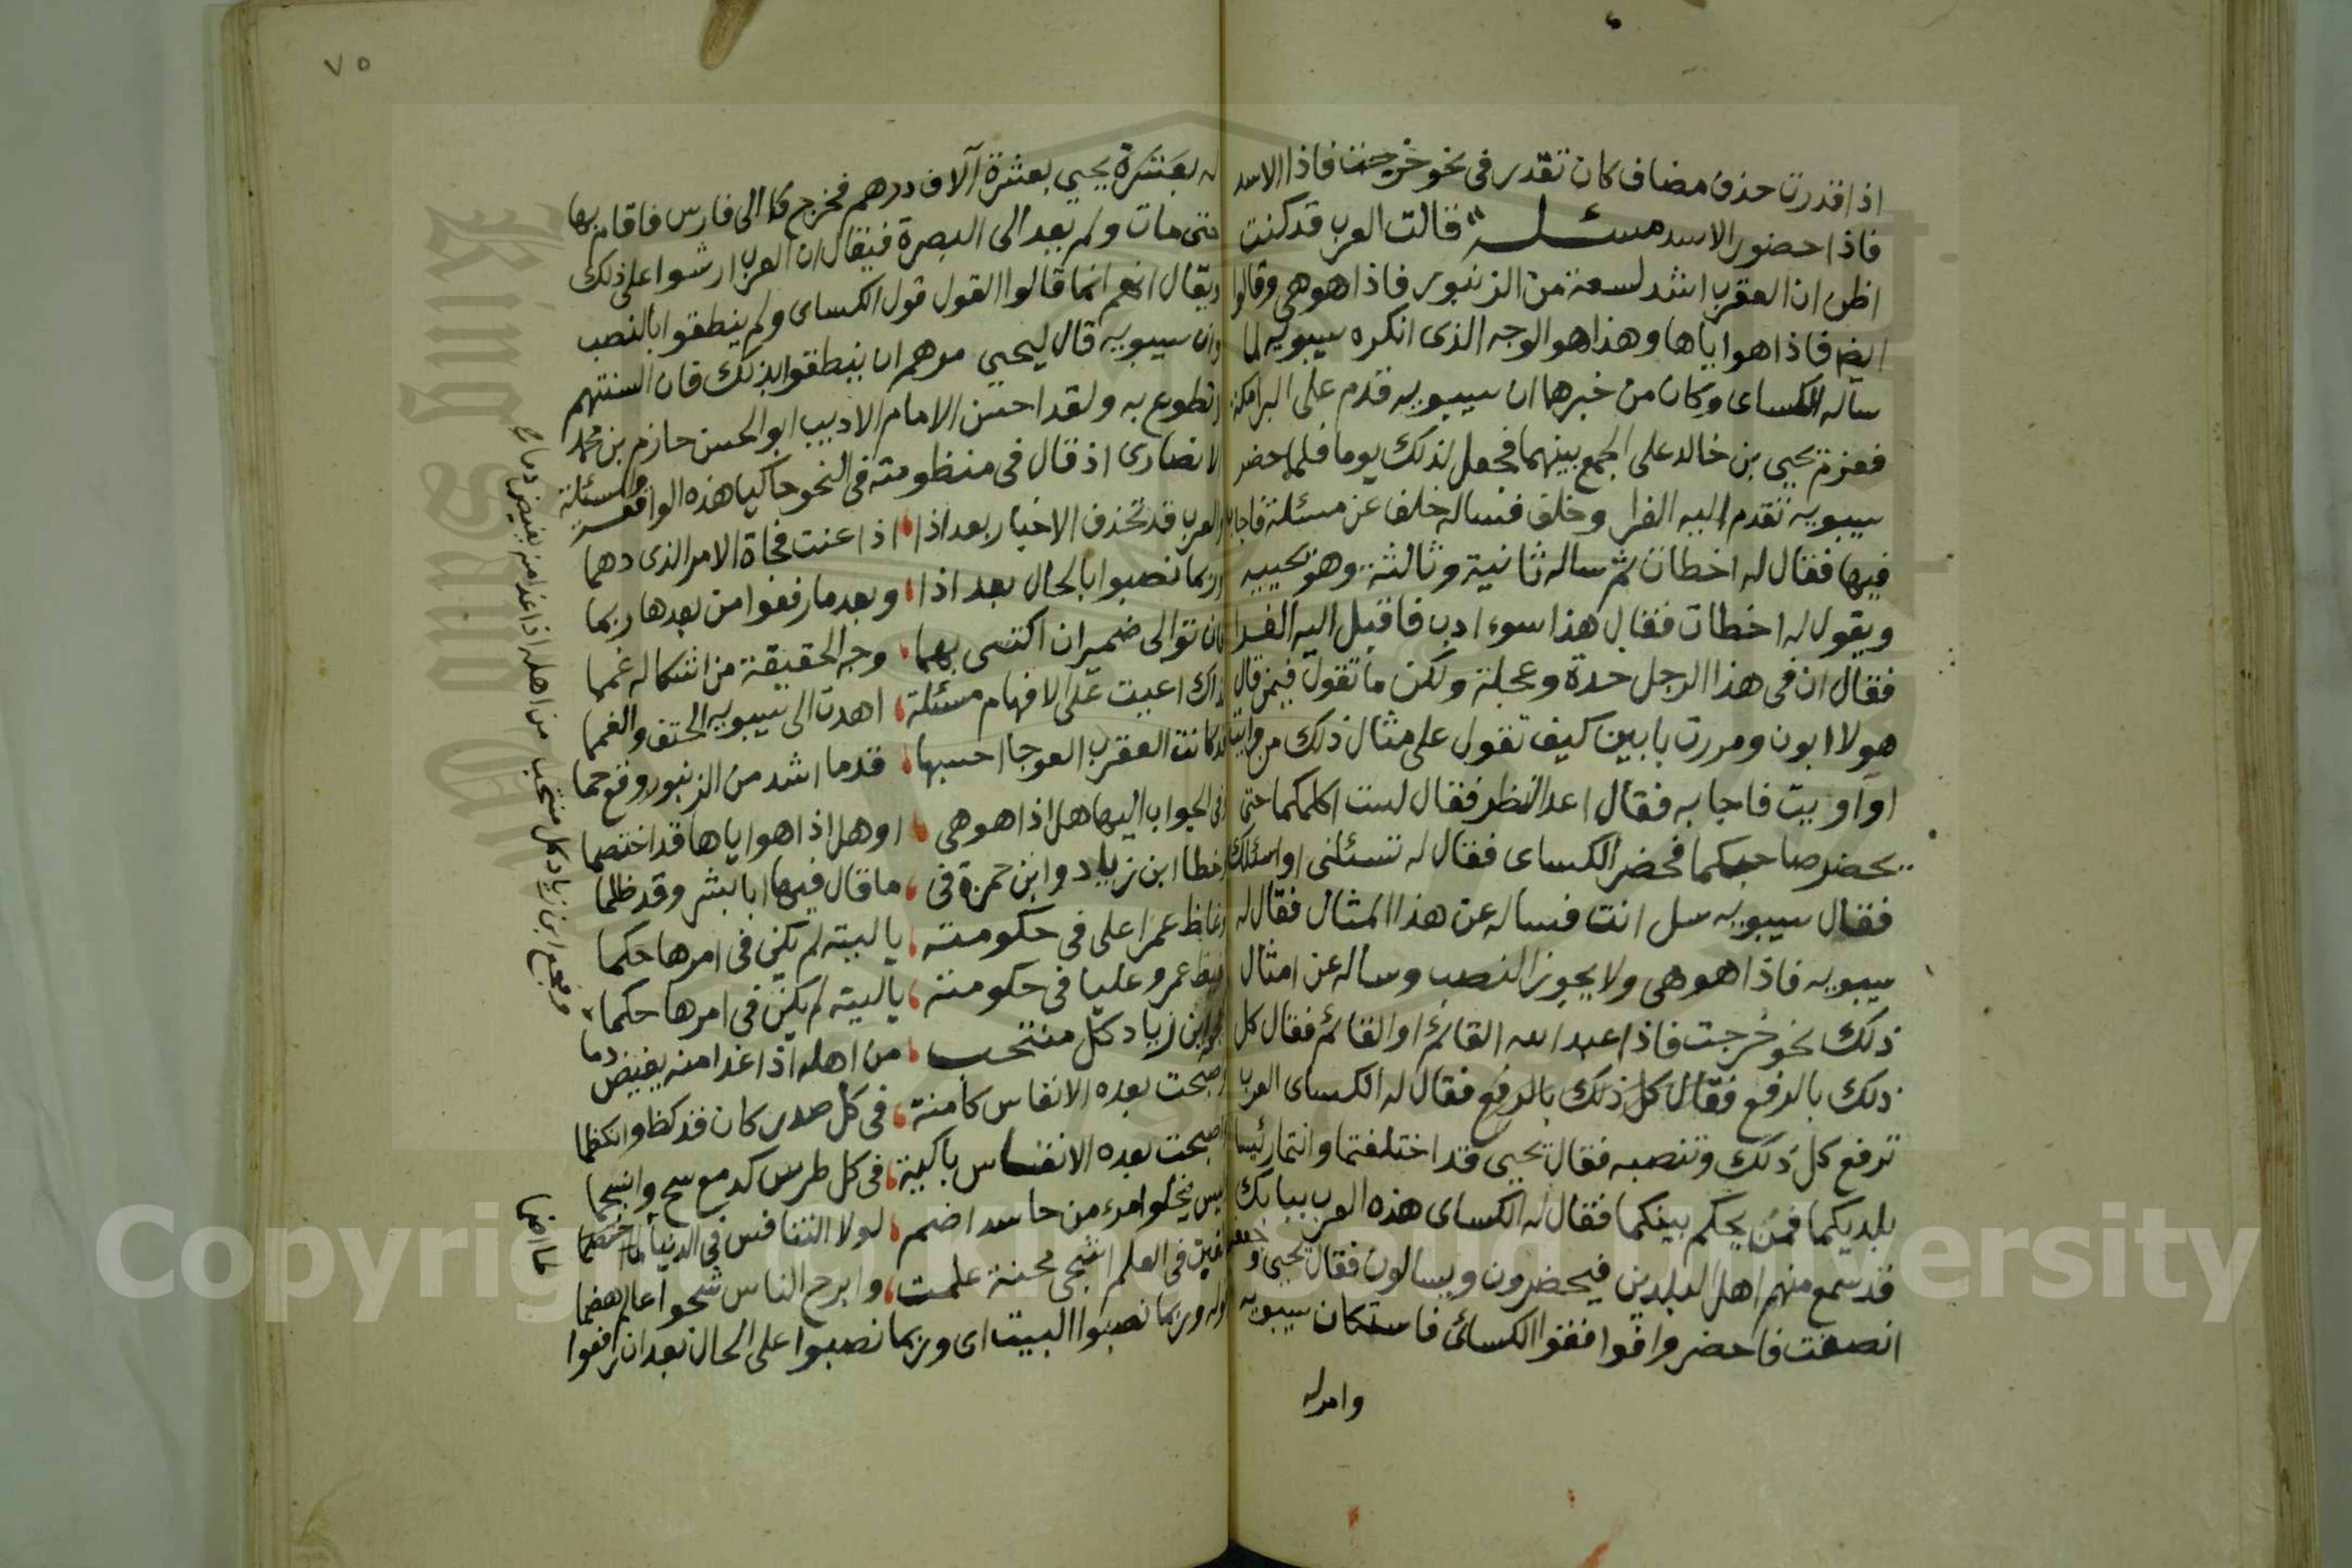 اذا قدرت حذف مضاف كان تقدر فى نحو خرجت فاذا الاسد
فاذا حضور الاسد مسئلـــه قالت العرب قد كنت
اظن ان العقرب اشد لسعة من الزنبور فاذا هو هى وقالوا
ايضا فاذا هو اياها وهذا هو الوجه الذى انكره سيبويه لما
سآله الكساى وكان من خبرها ان سيبويه قدم على البرامكة
فعزم يحيى بن خالد على الجمع بينهما فجعل لذلك يوما فلما حضر
سيبويه تقدم اليه الفرا وخلف فساله خلف عن مسئلة فاجاب
فيها فقال له اخطات ثم ساله ثانية وثالثة وهو يجيبه
ويقول له اخطات فقال هذا سوء ادب فاقبل اليه الفرا
فقال ان فى هذا الرجل حدة وعجلة ولكن ما تقول فيمن قال
هولا ابون ومررت بابين كيف تقول على مثال ذلك من وايت
او اويت فاجابه فقال اعد النظر فقال لست اكلمكما حتى
يحضر صاحبكما فحضر الكساى فقال له تسئلنى او اسئلك
فقال سيبويه سل انت فساله عن هذا المثال فقال له
سيبويه فاذا هو هى ولا يجوز النصب وساله عن امثال
ذلك نحو خرجت فاذا عبد الله القائم او القائم فقال كل
ذلك بالرفع فقال كل ذلك بالرفع فقال له الكساى العرب
ترفع كل ذلك وتنصبه فقال يحيى قد اختلفتما وانتما رئيسا
بلديكما فمن يحكم بينكما فقال له الكساى هذه العرب ببابك
قد سمع منهم اهل البلدين فيحضرون ويسالون فقال يحيى وجعفر
انصفت فاحضروا فوافقوا الكسائى فاستكان سيبويه
وامر له
له بعشرة يحيى بعشرة آلاف درهم فخرج الى فارس فاقام بها
حتى مات ولم يعد الى البصرة فيقال ان العرب ارشوا على ذلك
ويقال انهم انما قالوا القول قول الكساى ولم ينطقوا بالنصب
وان سيبويه قال ليحيى مرهم ان ينطقوا بذلك فان السنتهم
لا تطوع به ولقد احسن الامام الاديب ابو الحسن حازم بن محمد
الانصارى اذ قال فى منظومته فى النحو حاكيا هذه الواقعة والمسئلة
والعرب قد تحذف الاخبار بعد اذا اذا عنت فجاة الامر الذى دهما
وربما نصبوا بالحال بعد اذا وبعد ما رفعوا من بعدها ربما
فان توالى ضميران اكتسى بهما وجه الحقيقة من اشكاله غمما
لذاك اعيت على الافهام مسئلة اهدت الى سيبويه الحتف والغمما
قد كانت العقرب العوجا احسبها قدما اشد من الزنبور وقع حما
وفى الجواب اليها هل اذا هو هى او هل اذا هو اياها قد اختصما
وخطا ابن زياد وابن حمزة فى ما قال فيها ابا بشر وقد ظلما
وغاظ عمرا على فى حكومته يا ليته لم يكن فى امرها حكما
كغيظ عمرو عليا فى حكومته يا ليته لم يكن فى امرها حكما
وفجع ابن زياد كل منتحب من اهله اذ غدا منه يفيض دما
واصبحت بعده الانفاس كامنة فى كل صدر كان قد كظ وانكظما
واصبحت بعده الانفاس باكية فى كل طرس كدمع سح وانسجما
وليس يخلو امرء من حاسد اضم لولا التنافس فى الدنيا لما اختصما
والغبن فى العلم اشجى محنة علمت وابرح الناس شجوا عالم هضما
قوله وربما نصبوا البيت اى وربما نصبوا على الحال بعد ان رفعوا
وفجع ابن زياد كل منتحب من اهله اذ غدا منه يفيض دما
لما اضما
٧٥
Copyright © King Saud University
King Saud University